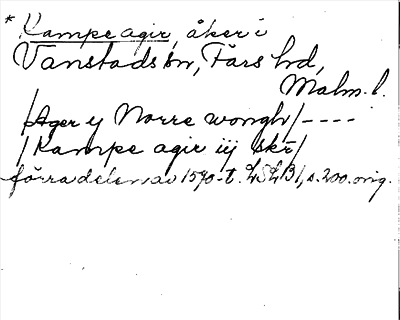 * Kampe agir, åker i
Vanstads sn, Färs hd,
Malm. l.
/Ager ij Norre wongh/----
/Kampe agir iij skr/
förra delen av 1590-t. LSLB1, s. 200. orig.